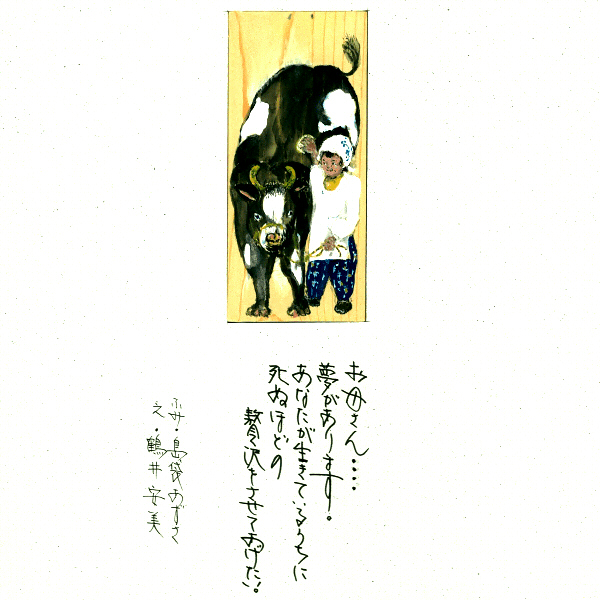 お母さん‥‥
夢があります。
あなたが生きているうちに
死ぬほどの
贅沢をさせてあげたい!
ふみ・島袋あずさ
え・鶴井安美